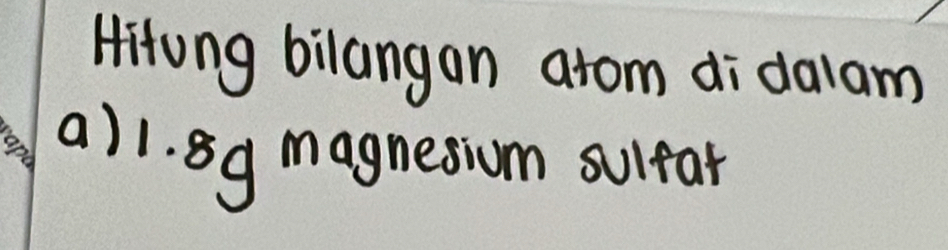 Hitung bilangan atom di dalam
a) 1.8g magnesium sulfat